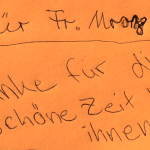 ür Fr. Mrozs
anke für di
schöne Zeit
ihnen